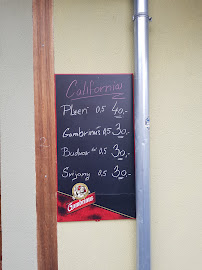 California
Plzeň 0,5 40,-
Gambrinus 0,5 30,-
Budvar 0,5 30,-
Svijany 0,5 30,-
Gambrinus